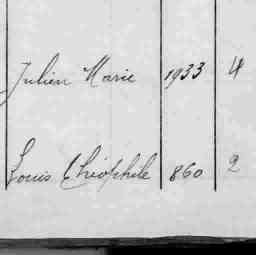 Julien Marie 1933 4
Louis Théophile 860 2